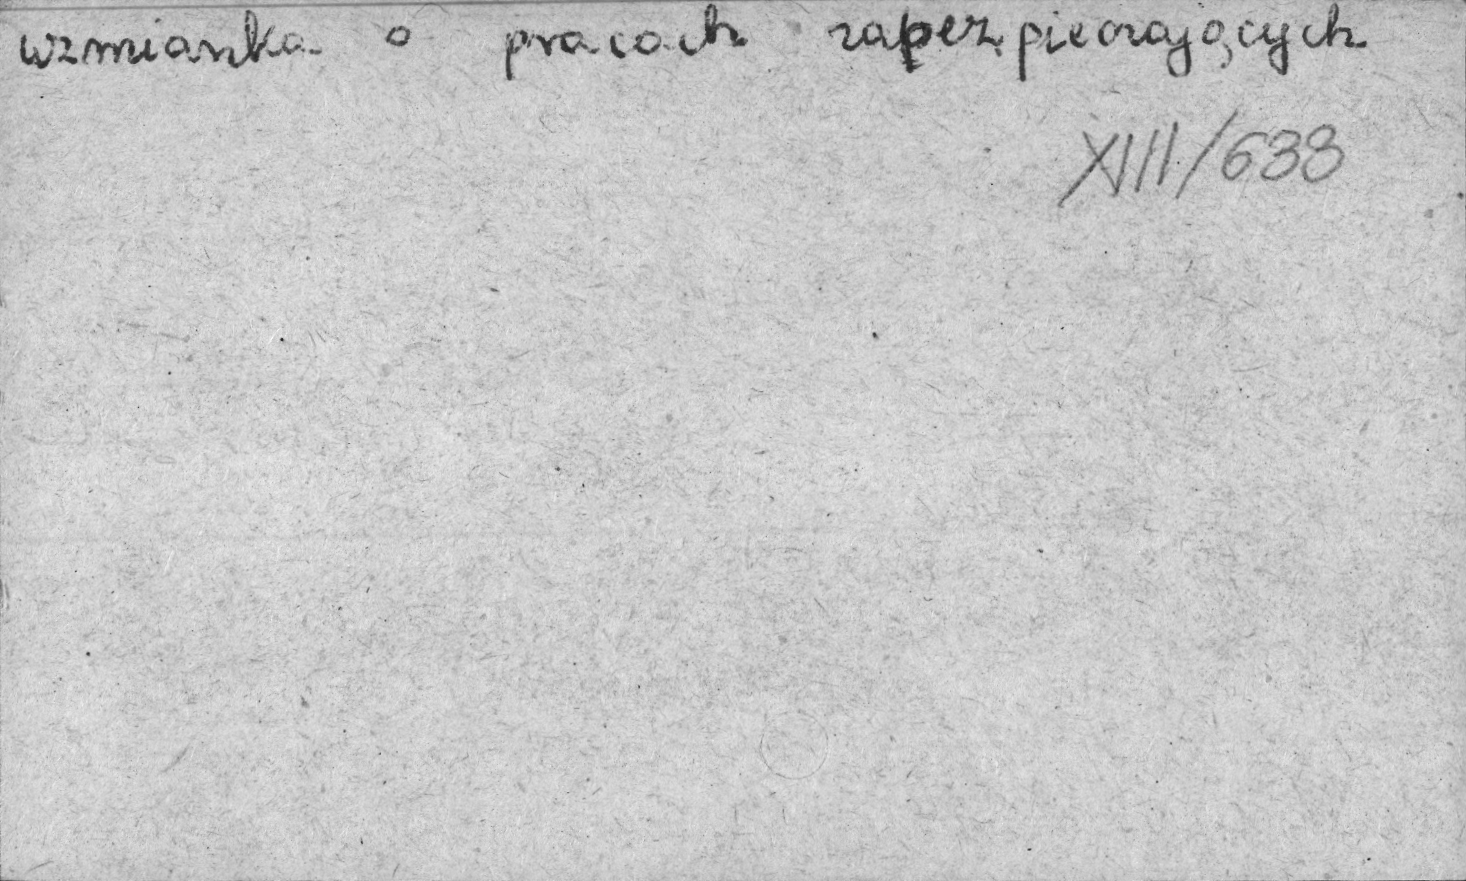 wzmianka o pracach zapezpieczających
XIII/638